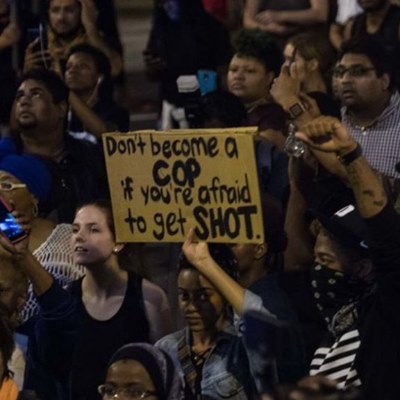 Don't become a
COP
if you're afraid
to get SHOT.